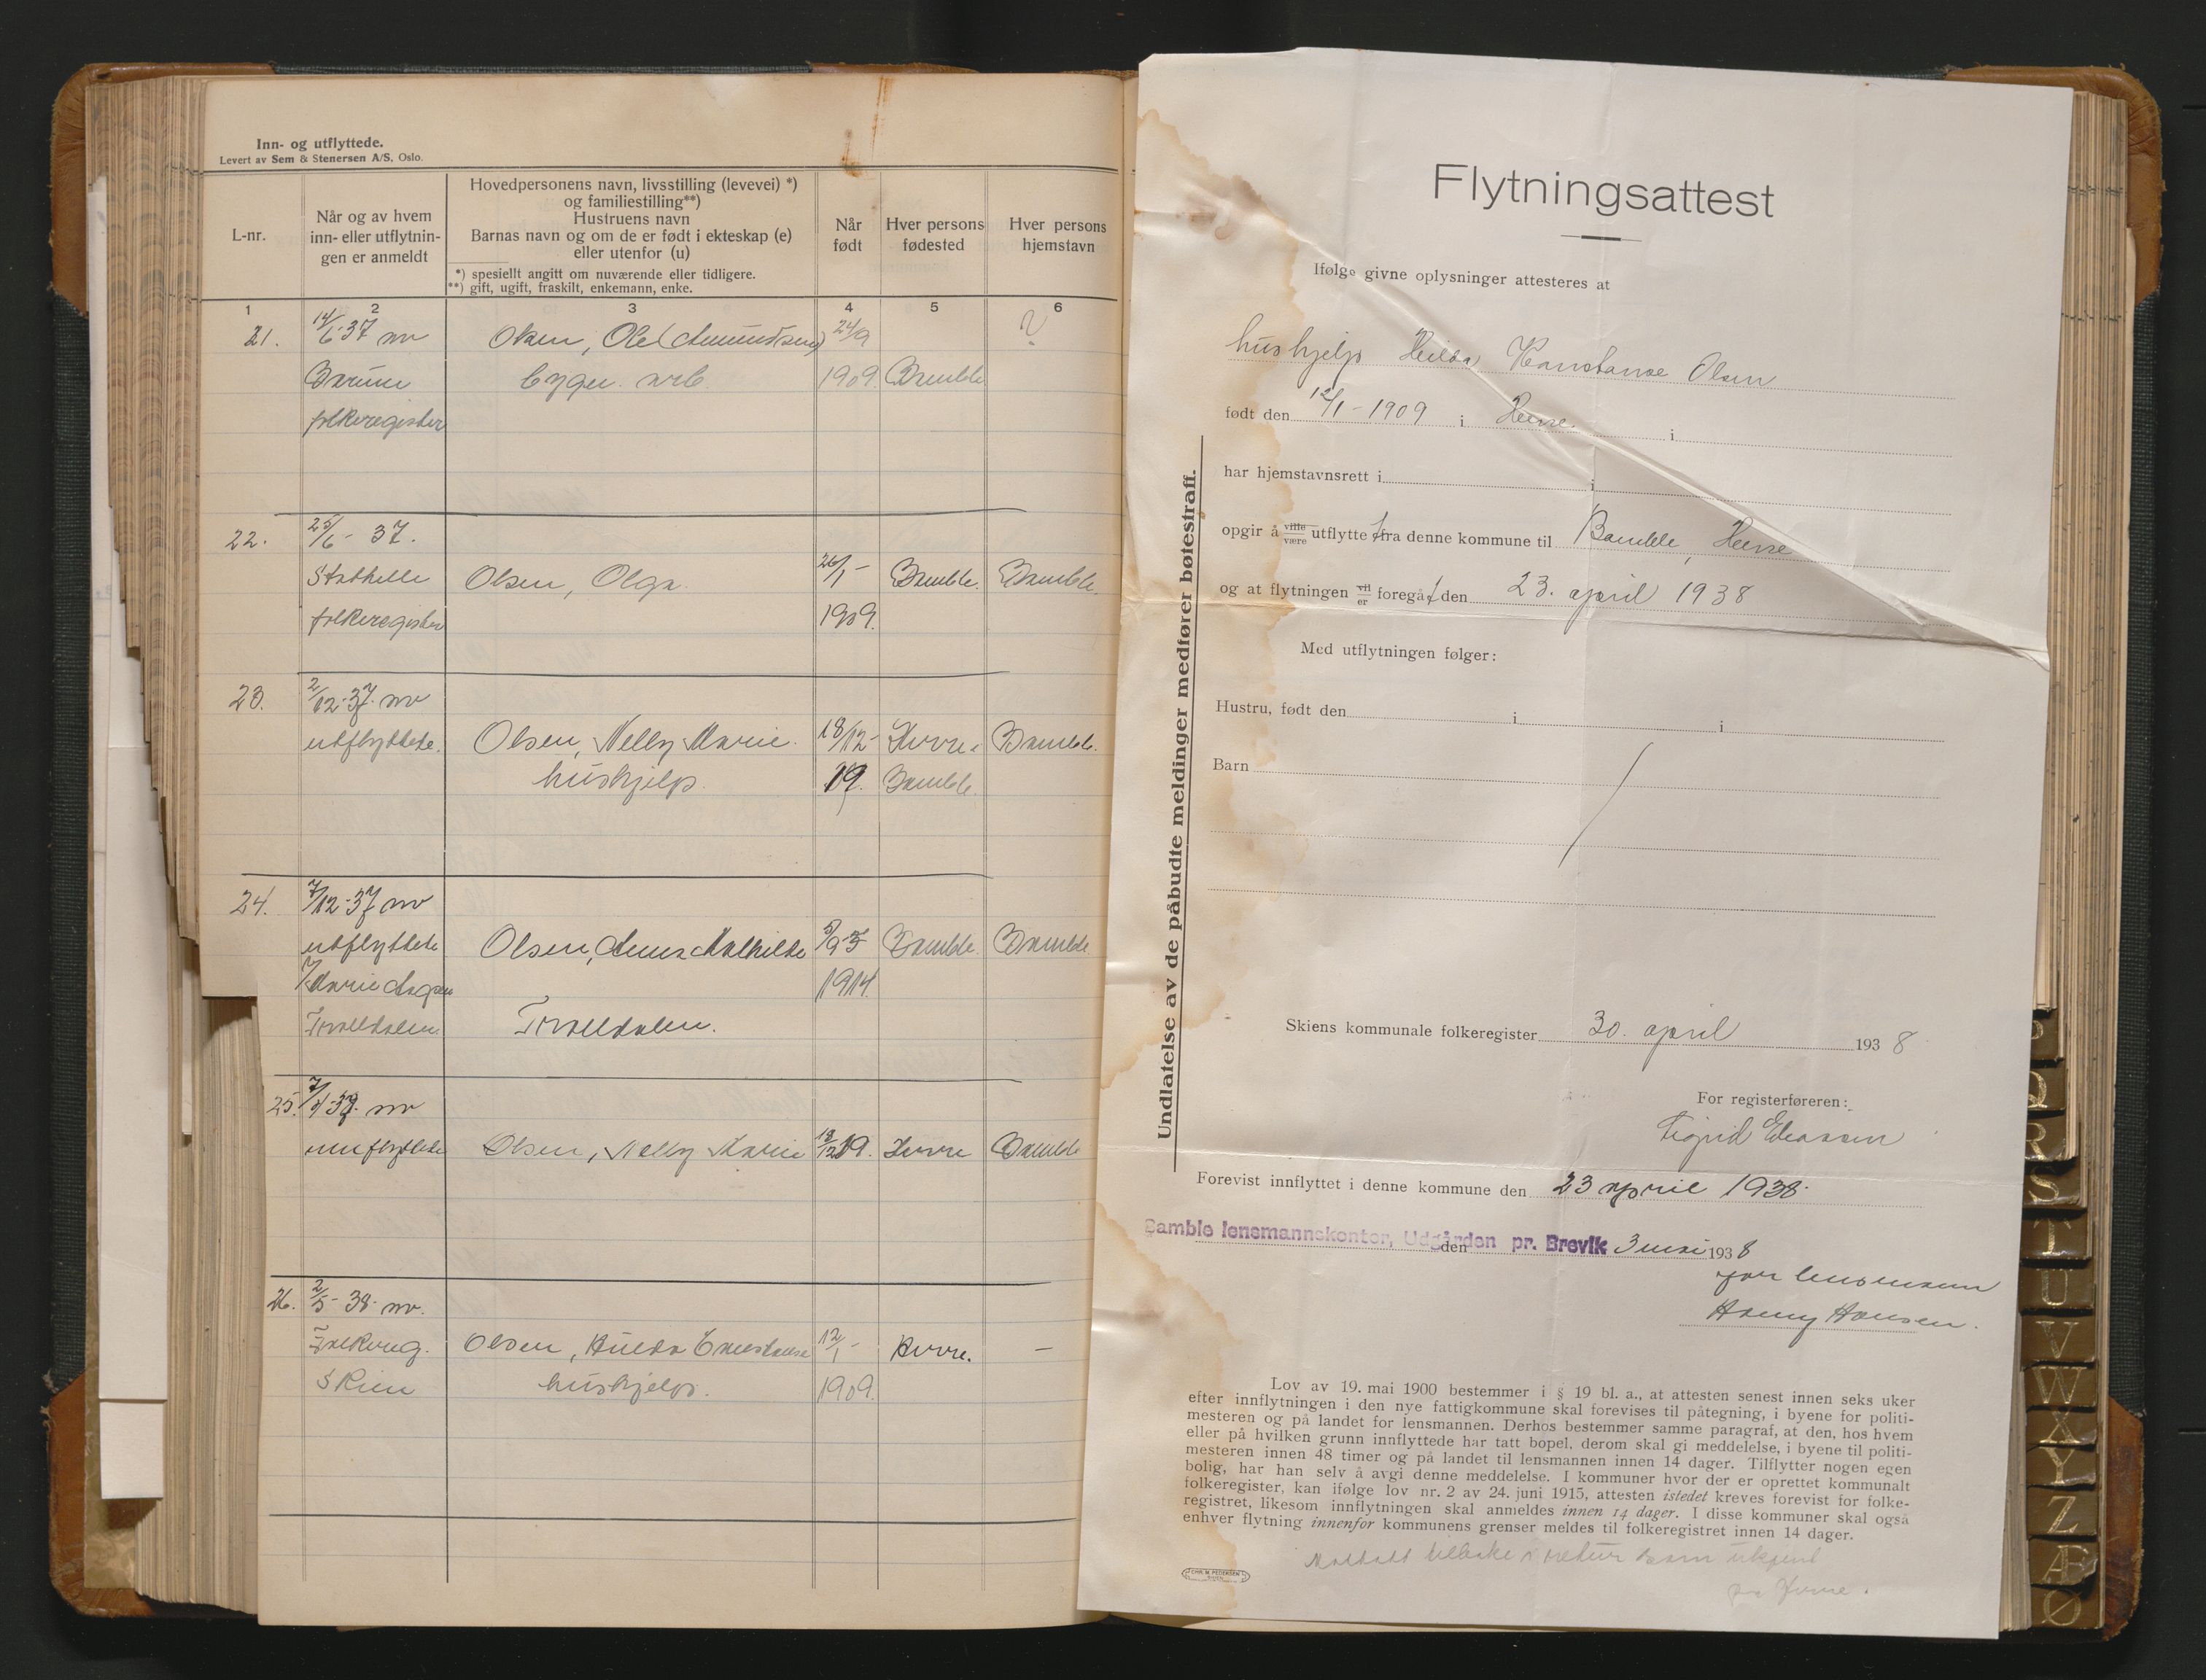 Inn- og utflyttede.
Levert av Sem & Stenersen A/S, Oslo.
L-nr.
Når og av hvem
inn- eller utflytnin-
gen er anmeldt
Hovedpersonens navn, livsstilling (levevei) *)
og familiestilling**)
Hustruens navn
Barnas navn og om de er født i ekteskap (e)
eller utenfor (u)
*) spesiellt angitt om nuværende eller tidligere.
**) gift, ugift, fraskilt, enkemann, enke.
Når
født
Hver persons
fødested
Hver persons
hjemstavn
1 2 3 4 5 6
21. 14/6-37 av Olsen, Ole (Amundsen) 24/9 ?
Bærum bygn. arb. 1909. Bamble
folkeregister
22. 25/6- 37.
Stathelle Olsen, Olga 26/1- Bamble. Bamble.
folkeregister 1909.
23. 2/12-37. av
utflyttede. Olsen, Nelly Marie. 18/12- Herre- Bamble.
hushjelp. 19. Bamble.
24. 7/12-37 av
utflyttede Olsen, Anna Mathilde Bamble. Bamble.
1914.
Trolldalen. Trolldalen.
25. av
innflyttede Olsen, Nelly Marie 18/12 19. Herre Bamble
26. 2/5-38. av.
Folkereg. Olsen, Hilda Constanse 12/1- Herre. —
Skien hushjelp. 1909.
Flytningsattest
Ifølge givne oplysninger attesteres at
hushjelp Hilda Konstanse Olsen
født den 12/1-1909 i Herre i
har hjemstavnsrett i i
opgir å ville være utflytte fra denne kommune til Bamble, Herre
og at flytningen vil er foregått den 23. april 1938
Med utflytningen følger:
Hustru, født den i i
Barn
Undlatelse av de påbudte meldinger medfører bøtestraff.
Skiens kommunale folkeregister 30. april 1938
For registerføreren:
Sigrid Eliassen
Forevist innflyttet i denne kommune den 23 april 1938.
Bamble lensmannskontor, Udgården pr. Brevik den 3 mai 1938
for lensmann
Hansen.
Lov av 19. mai 1900 bestemmer i § 19 bl. a., at attesten senest innen seks uker
efter innflytningen i den nye fattigkommune skal forevises til påtegning, i byene for politi-
mesteren og på landet for lensmannen. Derhos bestemmer samme paragraf, at den, hos hvem
eller på hvilken grunn innflyttede har tatt bopel, derom skal gi meddelelse, i byene til politi-
mesteren innen 48 timer og på landet til lensmannen innen 14 dager. Tilflytter nogen egen
bolig, har han selv å avgi denne meddelelse. I kommuner hvor der er oprettet kommunalt
folkeregister, kan ifølge lov nr. 2 av 24. juni 1915, attesten istedet kreves forevist for folke-
registret, likesom innflytningen skal anmeldes innen 14 dager. I disse kommuner skal også
enhver flytning innenfor kommunens grenser meldes til folkeregistret innen 14 dager.
Mottatt tilbake i retur som ukjent
på Herre.
CHR. M. PEDERSEN
P
Q
R
S
T
U
V
W
X
Y
Z
Æ
Ø